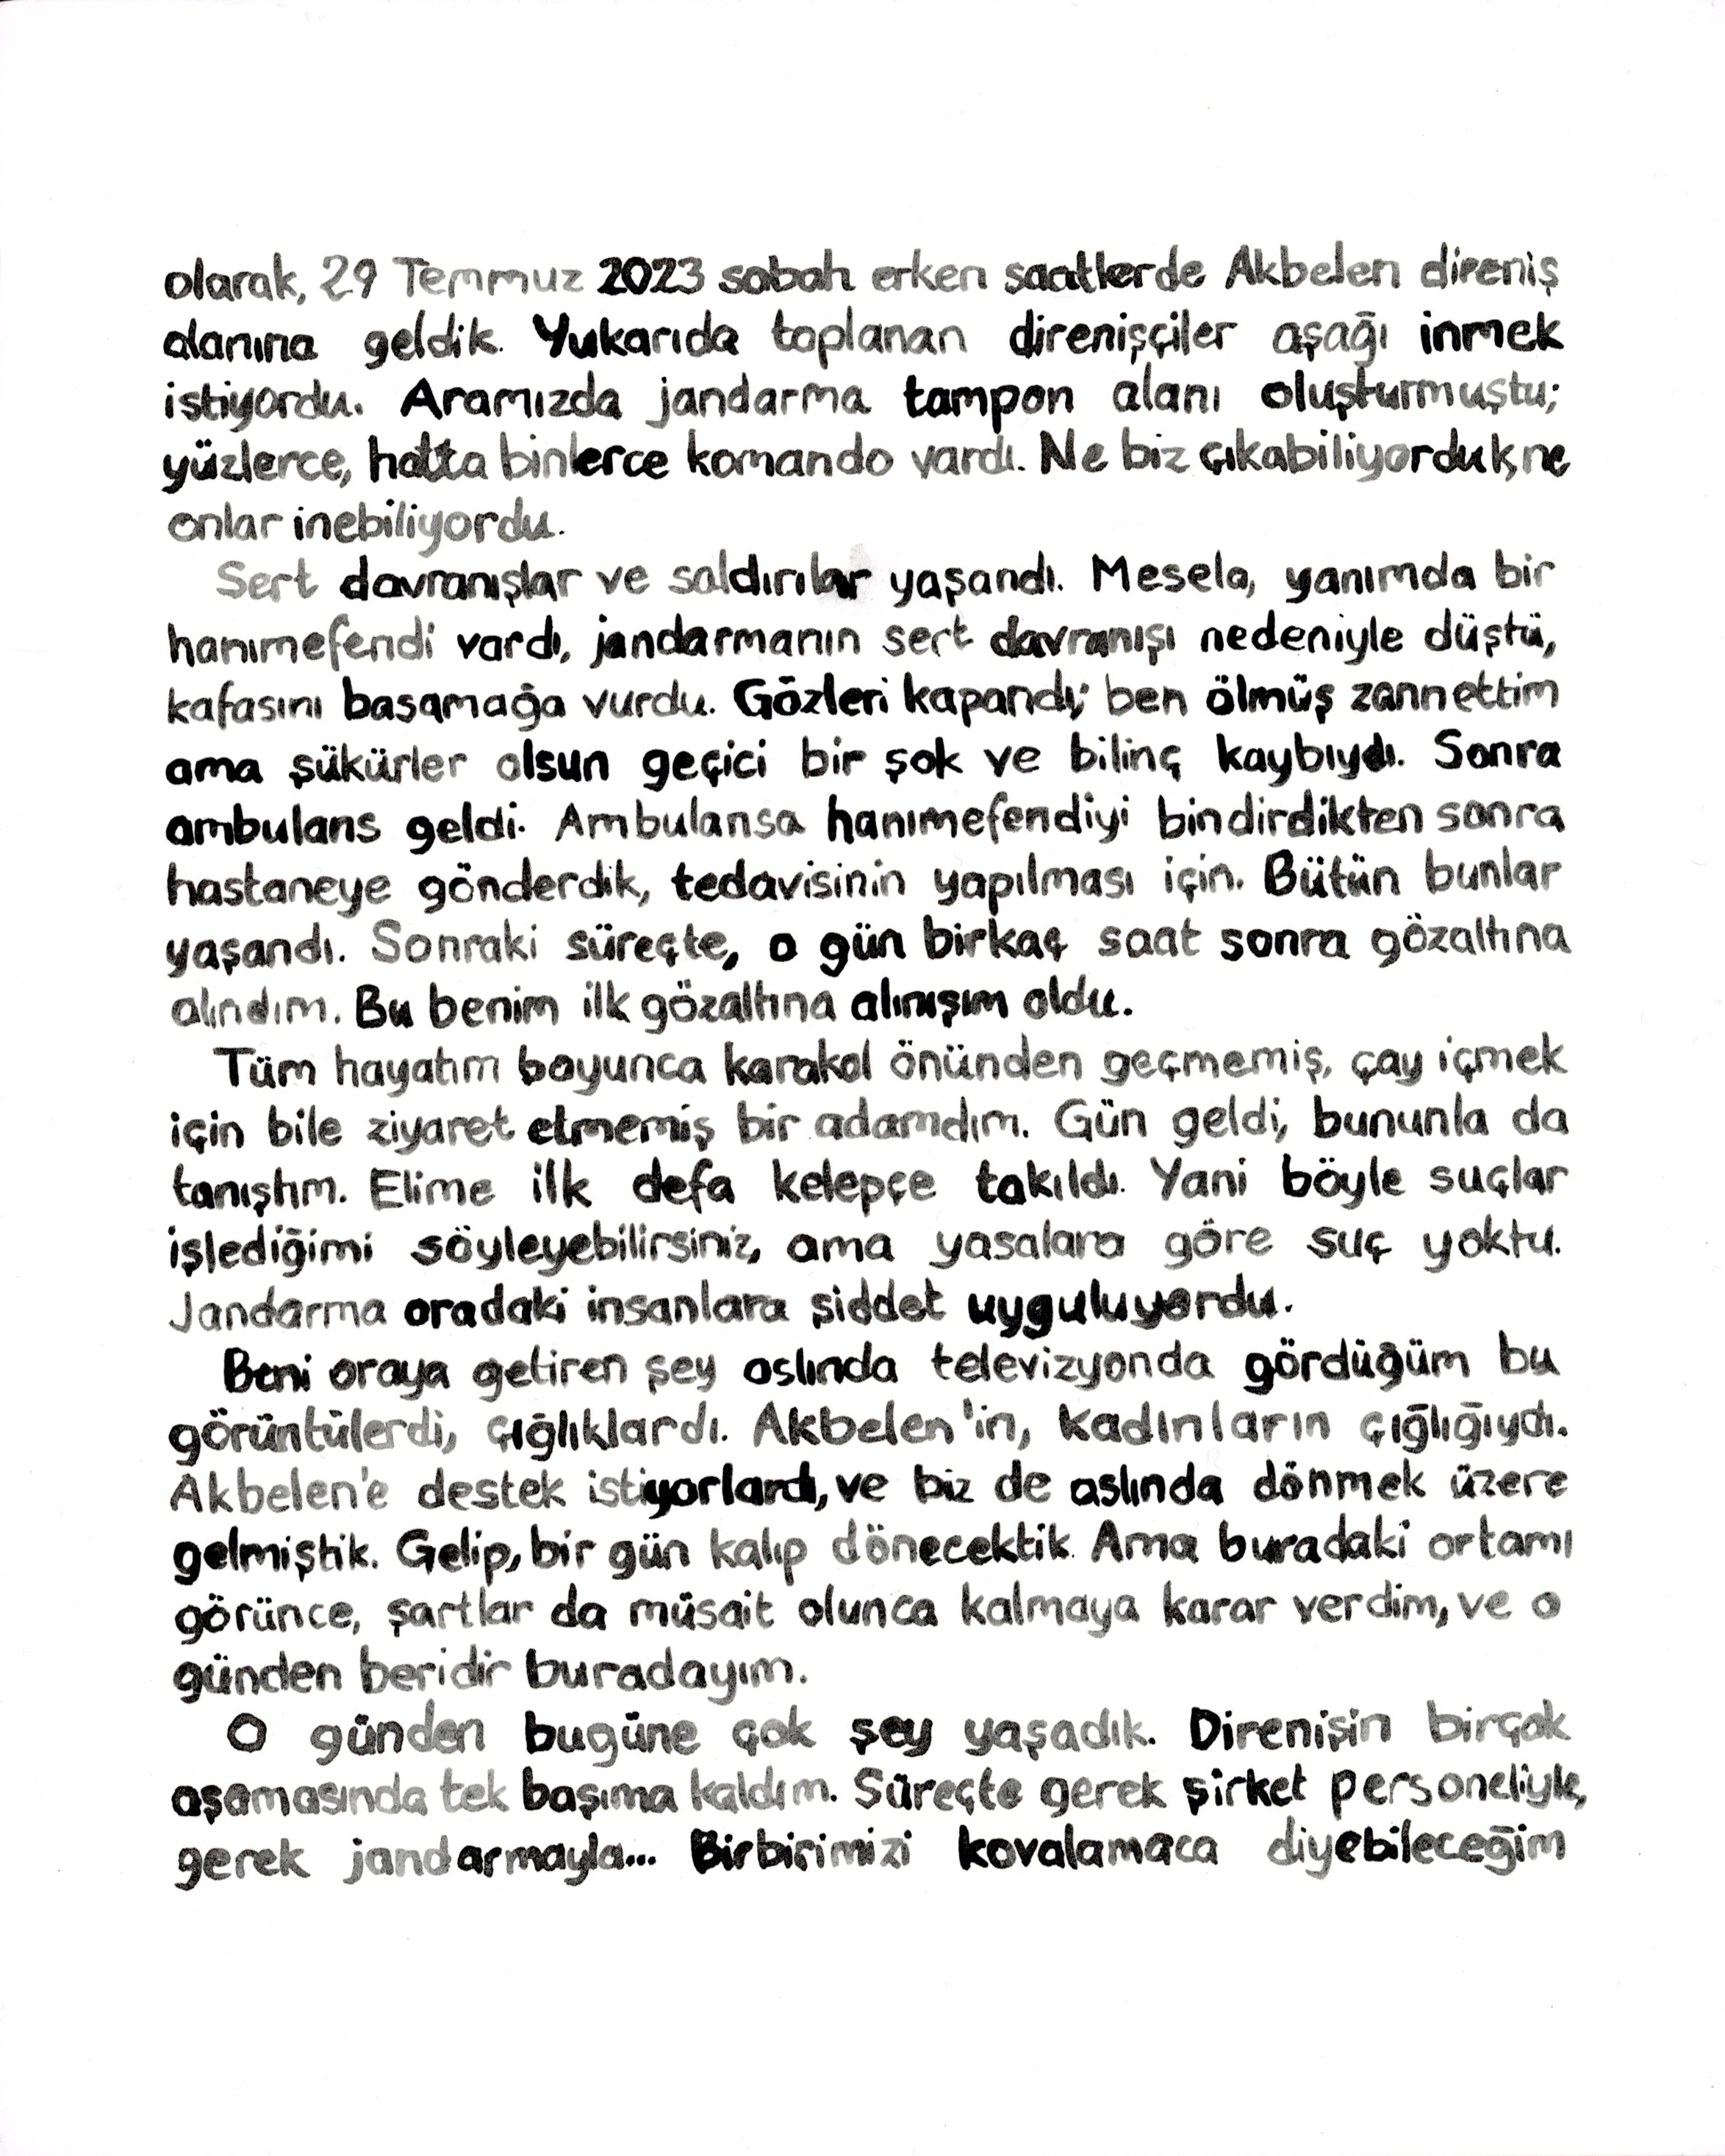 olarak, 29 Temmuz 2023 sabah erken saatlerde Akbelen direniş
alanına geldik. Yukarıda toplanan direnişçiler aşağı inmek
istiyordu. Aramızda jandarma tampon alanı oluşturmuştu;
yüzlerce, hatta binlerce komando vardı. Ne biz çıkabiliyorduk, ne
onlar inebiliyordu.
Sert davranışlar ve saldırılar yaşandı. Mesela, yanımda bir
hanımefendi vardı, jandarmanın sert davranışı nedeniyle düştü,
kafasını basamağa vurdu. Gözleri kapandı; ben ölmüş zannettim
ama şükürler olsun geçici bir şok ve bilinç kaybıydı. Sonra
ambulans geldi. Ambulansa hanımefendiyi bindirdikten sonra
hastaneye gönderdik, tedavisinin yapılması için. Bütün bunlar
yaşandı. Sonraki süreçte, o gün birkaç saat sonra gözaltına
alındım. Bu benim ilk gözaltına alınışım oldu.
Tüm hayatım boyunca karakol önünden geçmemiş, çay içmek
için bile ziyaret etmemiş bir adamdım. Gün geldi, bununla da
tanıştım. Elime ilk defa kelepçe takıldı. Yani böyle suçlar
işlediğimi söyleyebilirsiniz, ama yasalara göre suç yoktu.
Jandarma oradaki insanlara şiddet uyguluyordu.
Beni oraya getiren şey aslında televizyonda gördüğüm bu
görüntülerdi, çığlıklardı. Akbelen'in, kadınların çığlığıydı.
Akbelen'e destek istiyorlardı, ve biz de aslında dönmek üzere
gelmiştik. Gelip, bir gün kalıp dönecektik. Ama buradaki ortamı
görünce, şartlar da müsait olunca kalmaya karar verdim, ve o
günden beridir buradayım.
O günden bugüne çok şey yaşadık. Direnişin birçok
aşamasında tek başıma kaldım. Süreçte gerek şirket personeliyle,
gerek jandarmayla... Birbirimizi kovalamaca diyebileceğim